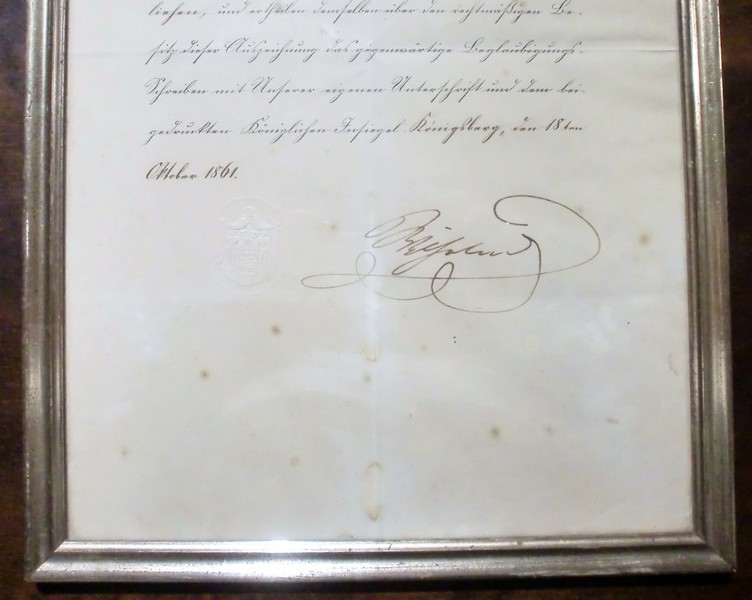 liehen, und ertheilen demselben über den rechtmäßigen Be-
sitz dieser Auszeichnung das gegenwärtige Beglaubigungs-
Schreiben mit Unserer eigenen Unterschrift und dem bei-
gedruckten Königlichen Insiegel Königsberg, den 18ten
Oktober 1861.
Wilhelm